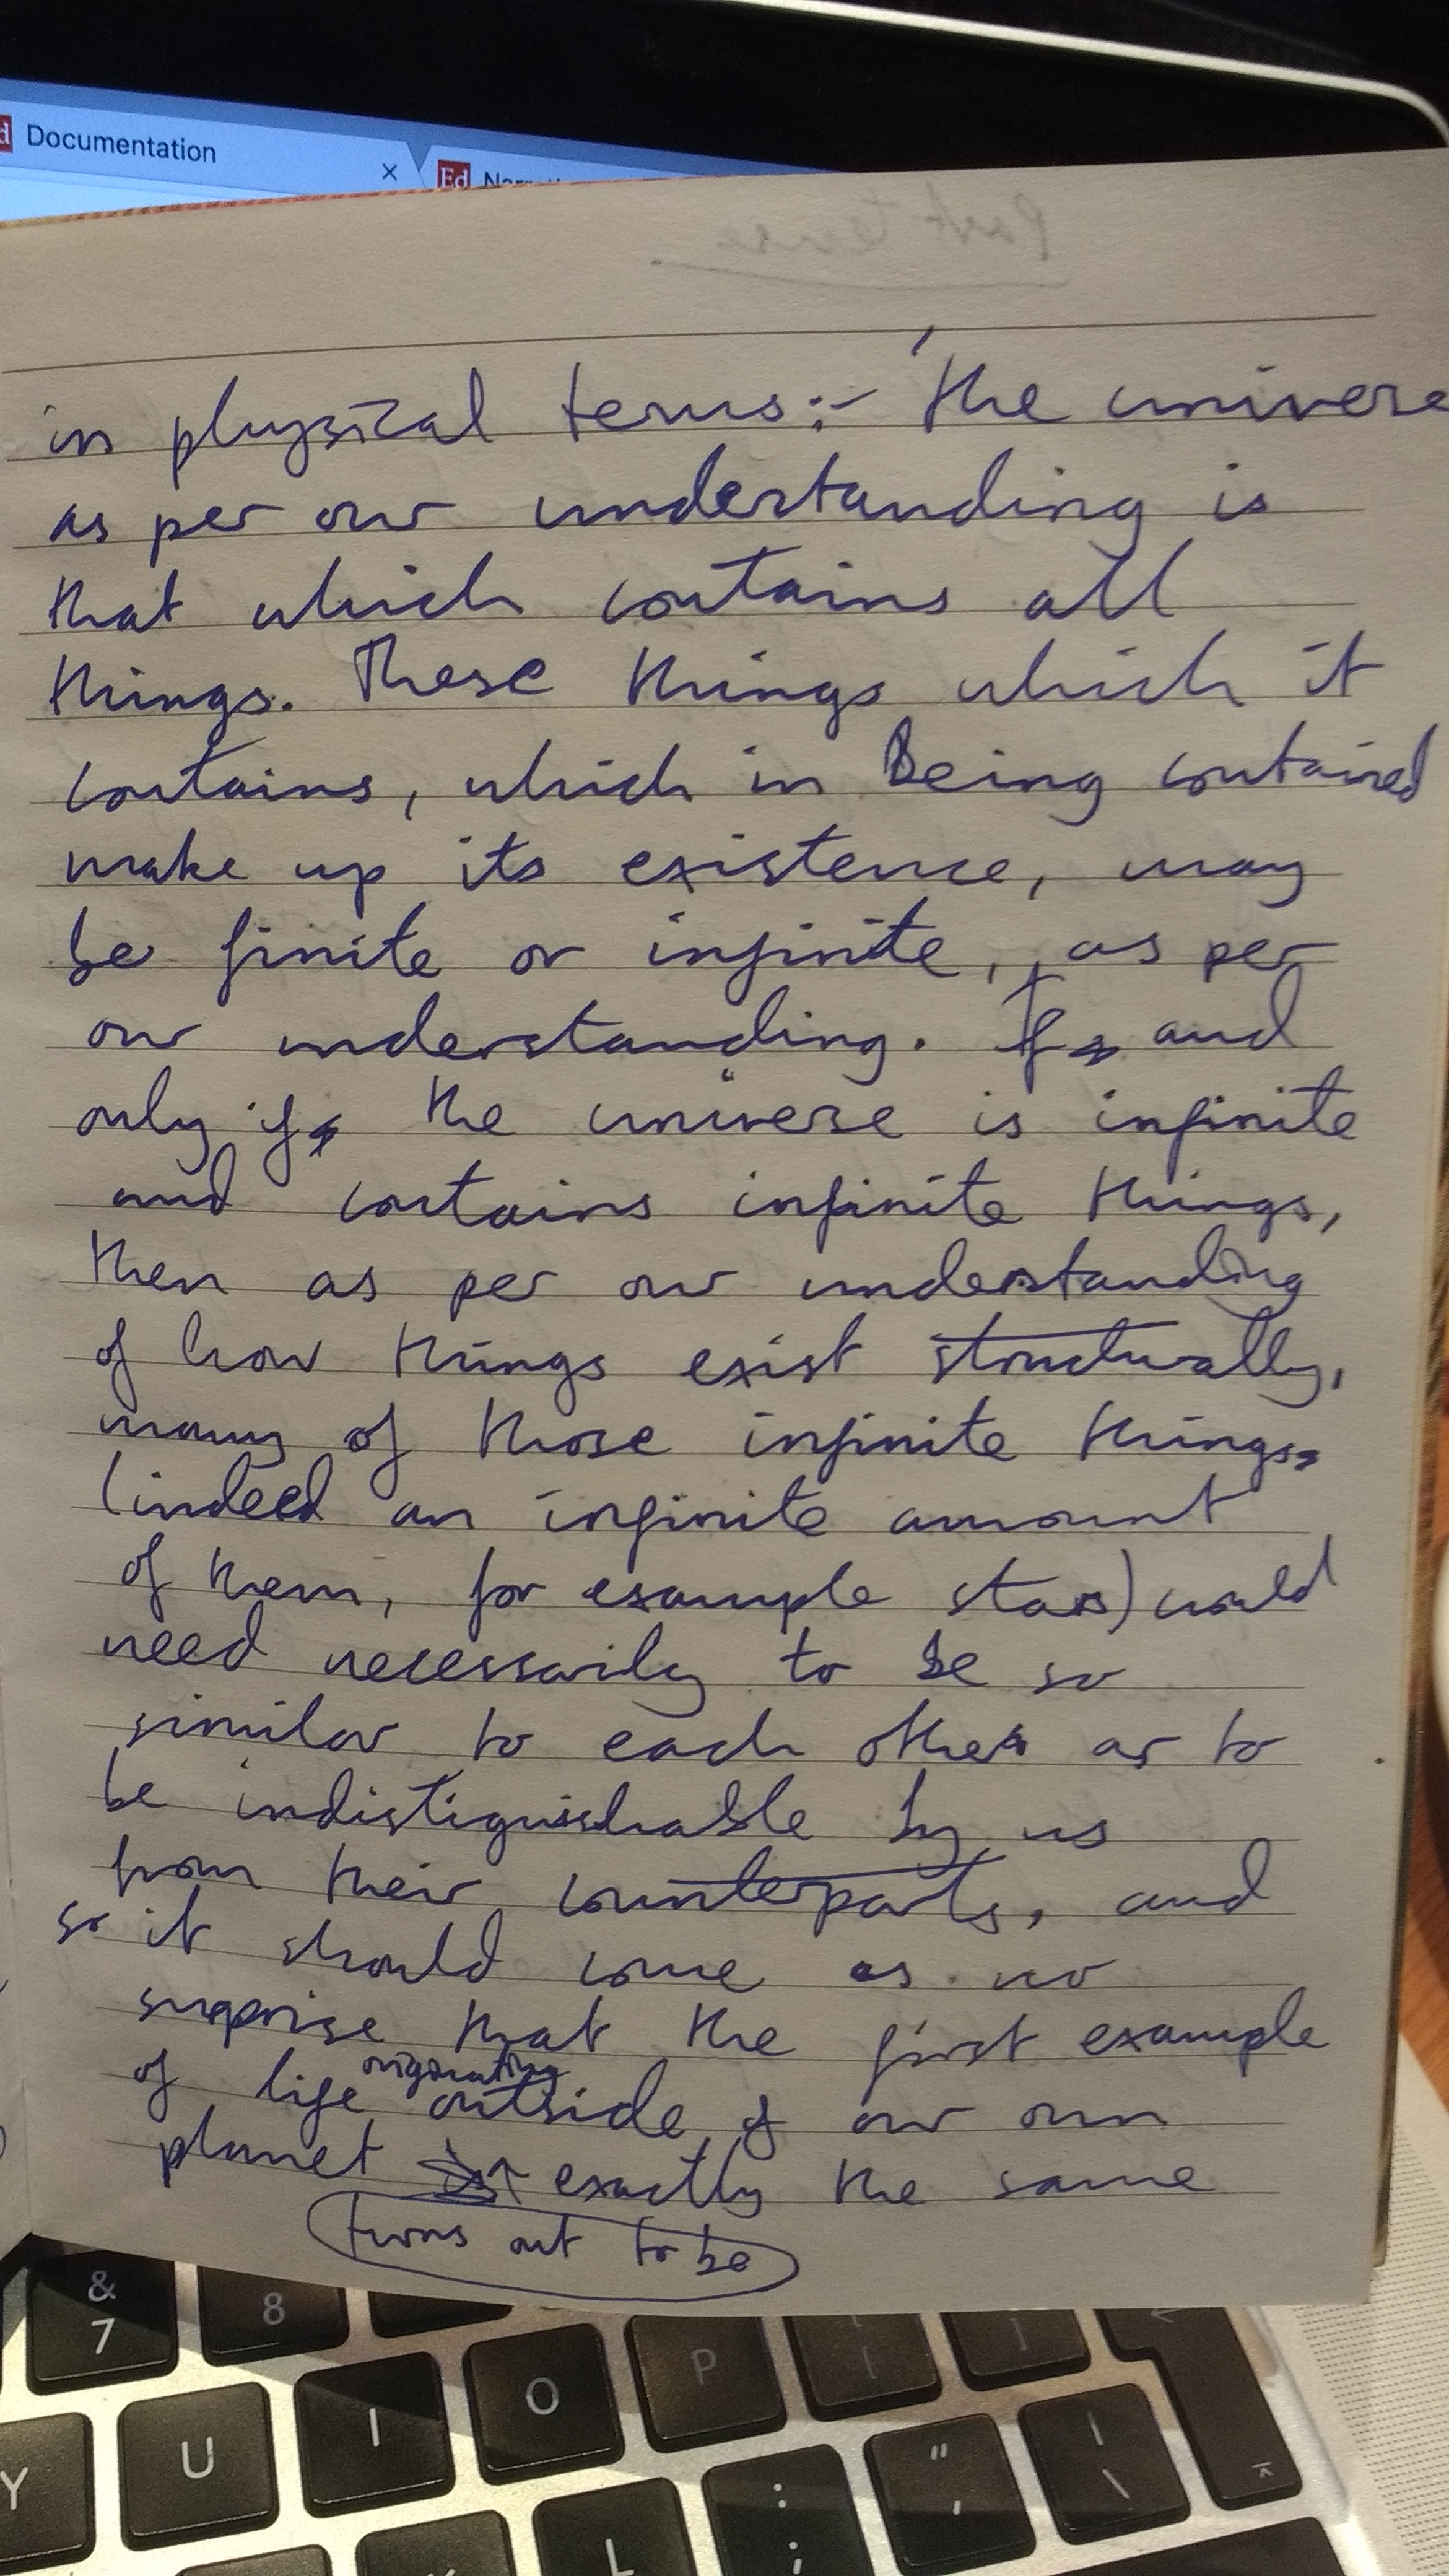 Documentation
×
Ed
Past tense
in physical terms:- 'the universe
as per our understanding is
that which contains all
things. These things which it
contains, which in being contained
make up its existence, may
be finite or infinite, as per
our understanding. If and
only if the universe is infinite
and contains infinite things,
then as per our understanding
of how things exist structurally,
many of those infinite things,
(indeed an infinite amount
of them, for example stars) would
need necessarily to be so
similar to each other as to
be indistiguishable by us
from their counterparts, and
so it should come as no
surprise that the first example
of life originating outside of our own
planet exactly the same
turns out to be
& 7
8
U I O P { [ } ]
Y L : ; " ' | \